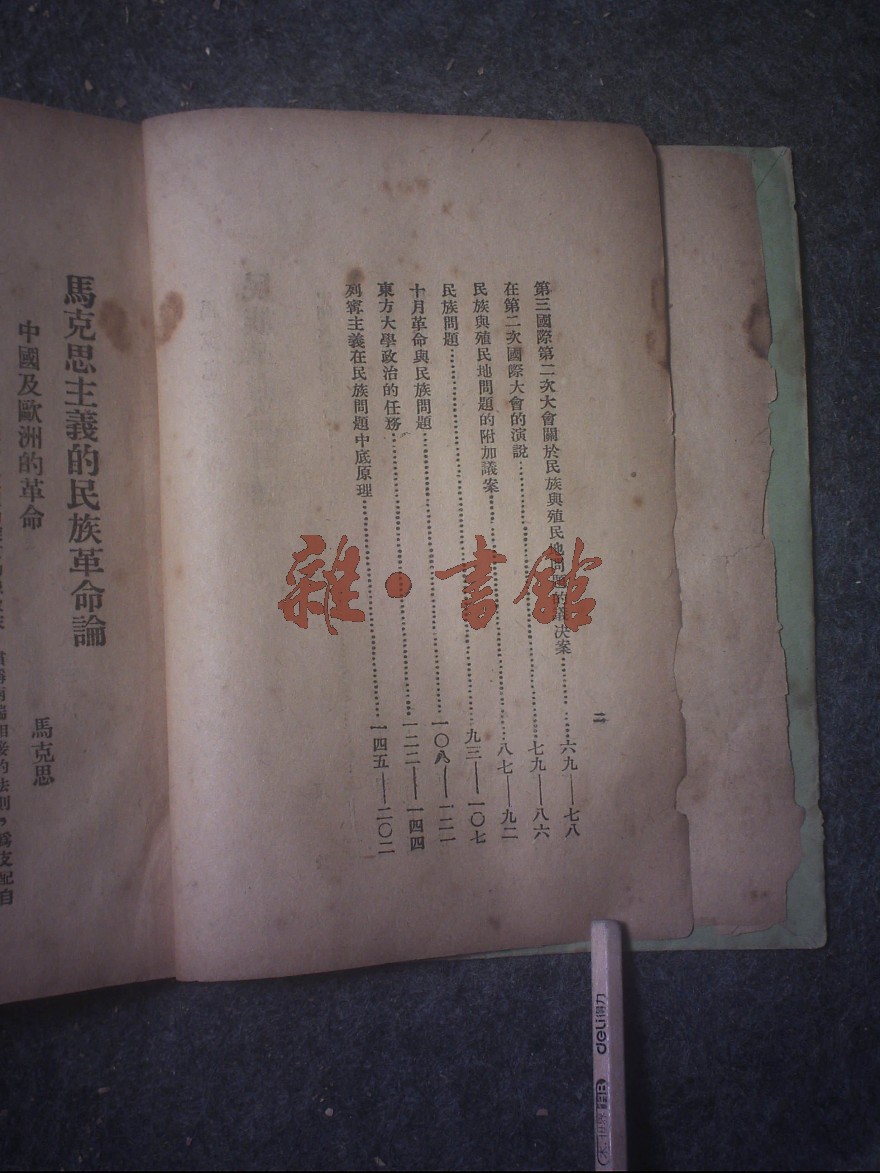 二
第三國際第二次大會關於民族與殖民地問題的議決案……六九——七八
在第二次國際大會的演說……七九——八六
民族與殖民地問題的附加議案……八七——九二
民族問題……九三——一〇七
十月革命與民族問題……一〇八——一二一
東方大學政治的任務……一二二——一四四
列寧主義在民族問題中底原理……一四五——二〇二
馬克思主義的民族革命論
中國及歐洲的革命 馬克思
兩端相接的法則，爲支配自
雜·書館
deli得力